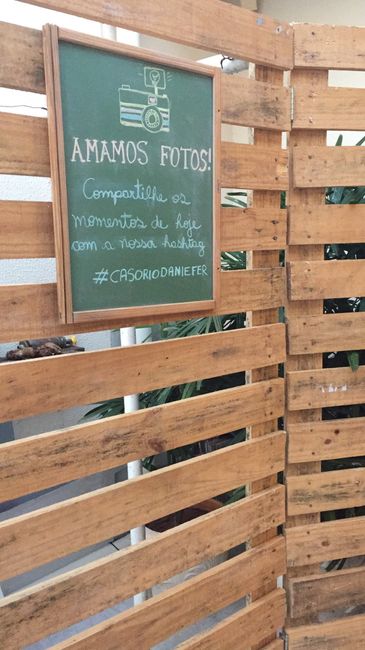 AMAMOS FOTOS!
Compartilhe os
momentos de hoje
com a nossa hashtag
#CASORIODANIEFER